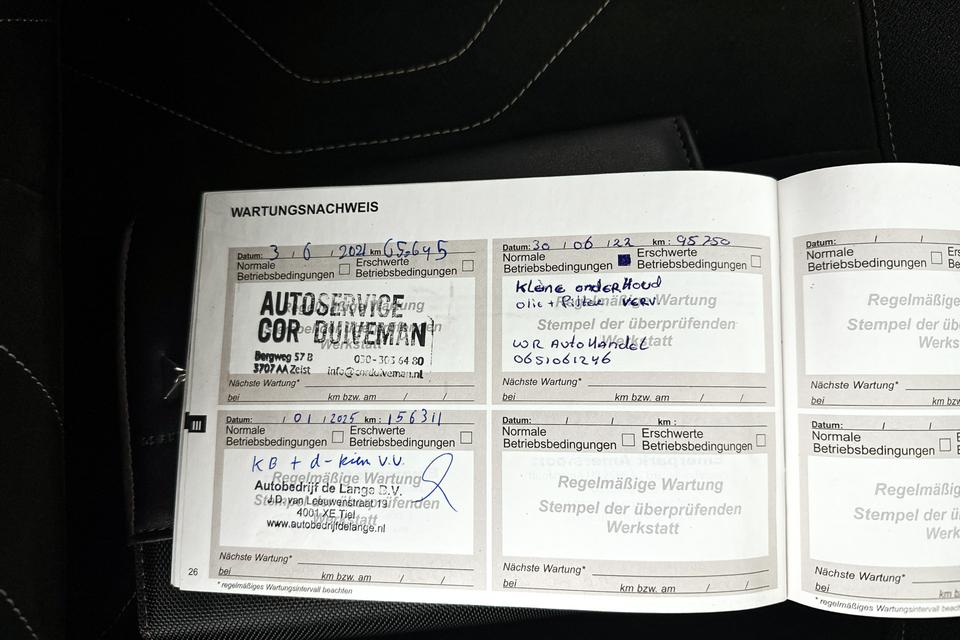 WARTUNGSNACHWEIS
Datum: 3 / 6 / 2021 km 65.645
Normale Betriebsbedingungen
Erschwerte Betriebsbedingungen
Regelmäßige Wartung
Stempel der überprüfenden
Werkstatt
AUTOSERVICE
COR DUIVEMAN
Bergweg 57 B
030 - 303 64 80
3707 AA Zeist
info@corduiveman.nl
Nächste Wartung*
bei km bzw. am / /
Datum: 30 / 06 / 22 km : 95250
Normale Betriebsbedingungen
Erschwerte Betriebsbedingungen
Kleine onderHoud
olie + Filter VERV
Regelmäßige Wartung
Stempel der überprüfenden
Werkstatt
WR AutoHandel
0651061246
Nächste Wartung*
bei km bzw. am / /
Datum: / 01 / 2025 km : 156311
Normale Betriebsbedingungen
Erschwerte Betriebsbedingungen
KB + d- v.v.
Regelmäßige Wartung
Stempel der überprüfenden
Werkstatt
Autobedrijf de Lange B.V.
J.D. van Leeuwenstraat 19
4001 XE Tiel
www.autobedrijfdelange.nl
Nächste Wartung*
bei km bzw. am / /
Datum: / / km :
Normale Betriebsbedingungen
Erschwerte Betriebsbedingungen
Regelmäßige Wartung
Stempel der überprüfenden
Werkstatt
Nächste Wartung*
bei km bzw. am / /
26
* regelmäßiges Wartungsintervall beachten
III
Datum: / /
Normale
Betriebsbedingungen
Regelmäßige
Stempel der ü
Nächste Wartung*
bei km bzw. am
Datum: / /
Normale
Betriebsbedingungen
Regelmäßige
Stempel der ü
Nächste Wartung*
bei
* regelmäßiges Wartungsintervall beachten